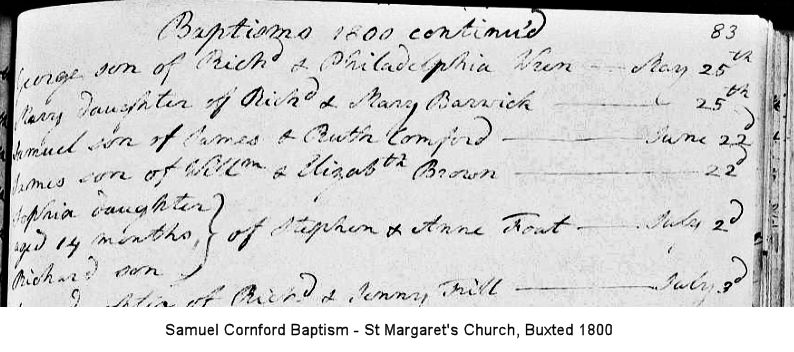 Baptisms 1800 continu'd 83
George son of Rich'd & Philadelphia Wren May 25th
Mary daughter of Rich'd & Mary Barwick 25th
Samuel son of James & Ruth Comford June 22d
James son of Will'm & Elizab'th Brown 22d
Sophia daughter
aged 14 months, of Stephen & Anne Foat July 2d
Richard son
of Rich'd & Jenny Trill July 3d
Samuel Cornford Baptism - St Margaret's Church, Buxted 1800